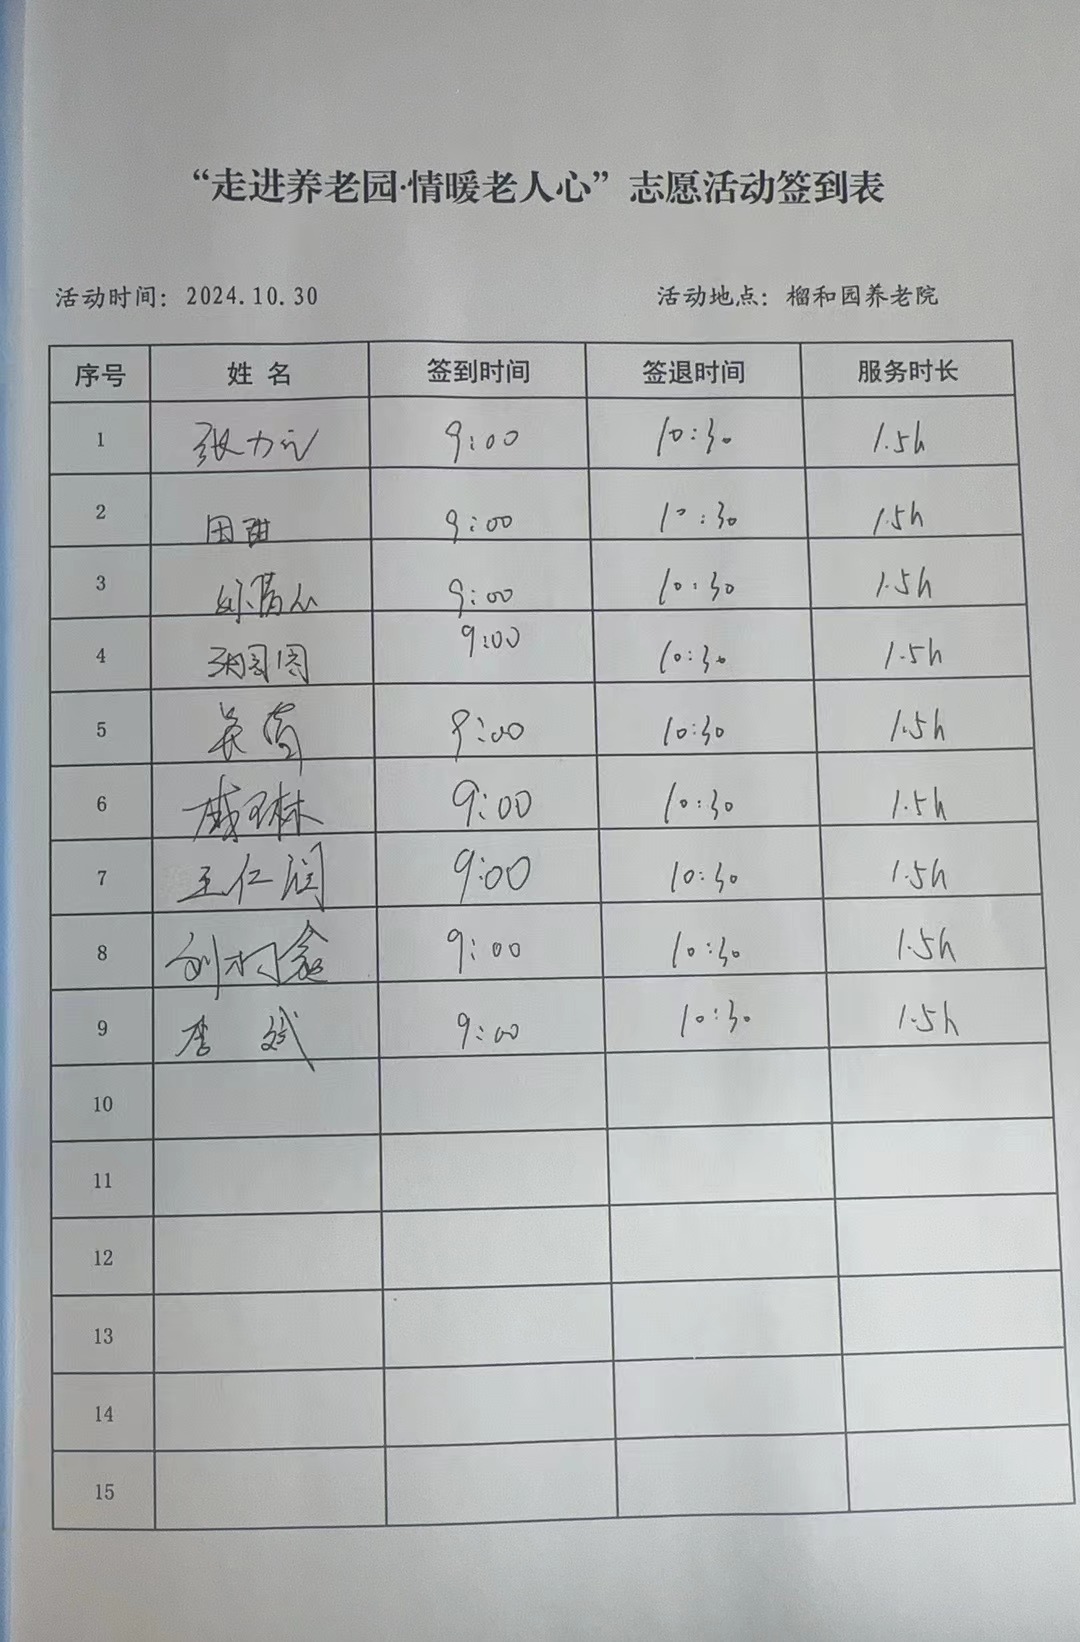 “走进养老园·情暖老人心”志愿活动签到表
活动时间：2024.10.30 活动地点：榴和园养老院
序号 姓名 签到时间 签退时间 服务时长
1 张力 9:00 10:30 1.5h
2 田甜 9:00 10:30 1.5h
3 9:00 10:30 1.5h
4 圆圆 9:00 10:30 1.5h
5 吴 9:00 10:30 1.5h
6 戚琳 9:00 10:30 1.5h
7 王仁润 9:00 10:30 1.5h
8 刘柯鑫 9:00 10:30 1.5h
9 李斌 9:00 10:30 1.5h
10
11
12
13
14
15